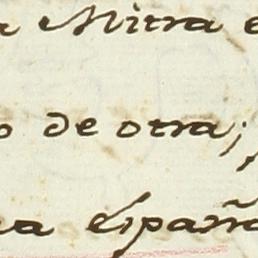 a Mitra e
o de otra;
na española